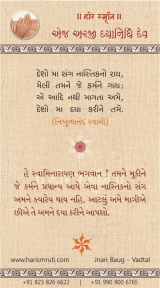 ॥ હરિ સ્મૃતિ ॥
એજ અરજી દયાનિધિ દેવ
દેશો મા સંગ નાસ્તિકનો રાય,
મેલી તમને જે કર્મને ગાય;
એ આદિ નથી માગતા અમે,
દેશો મા દયા કરીને તમે.
(નિષ્કુળાનંદ સ્વામી)
હે સ્વામિનારાયણ ભગવાન ! તમને મૂકીને
જે કર્મને પ્રધાન્ય આપે એવા નાસ્તિકનો સંગ
અમને ક્યારેય થાય નહિ. આટલું અમે માગીએ
છીએ તે અમને દયા કરીને આપશો.
www.harismruti.com
Jnan Baug - Vadtal
+91 823 826 6622 | +91 990 900 6765